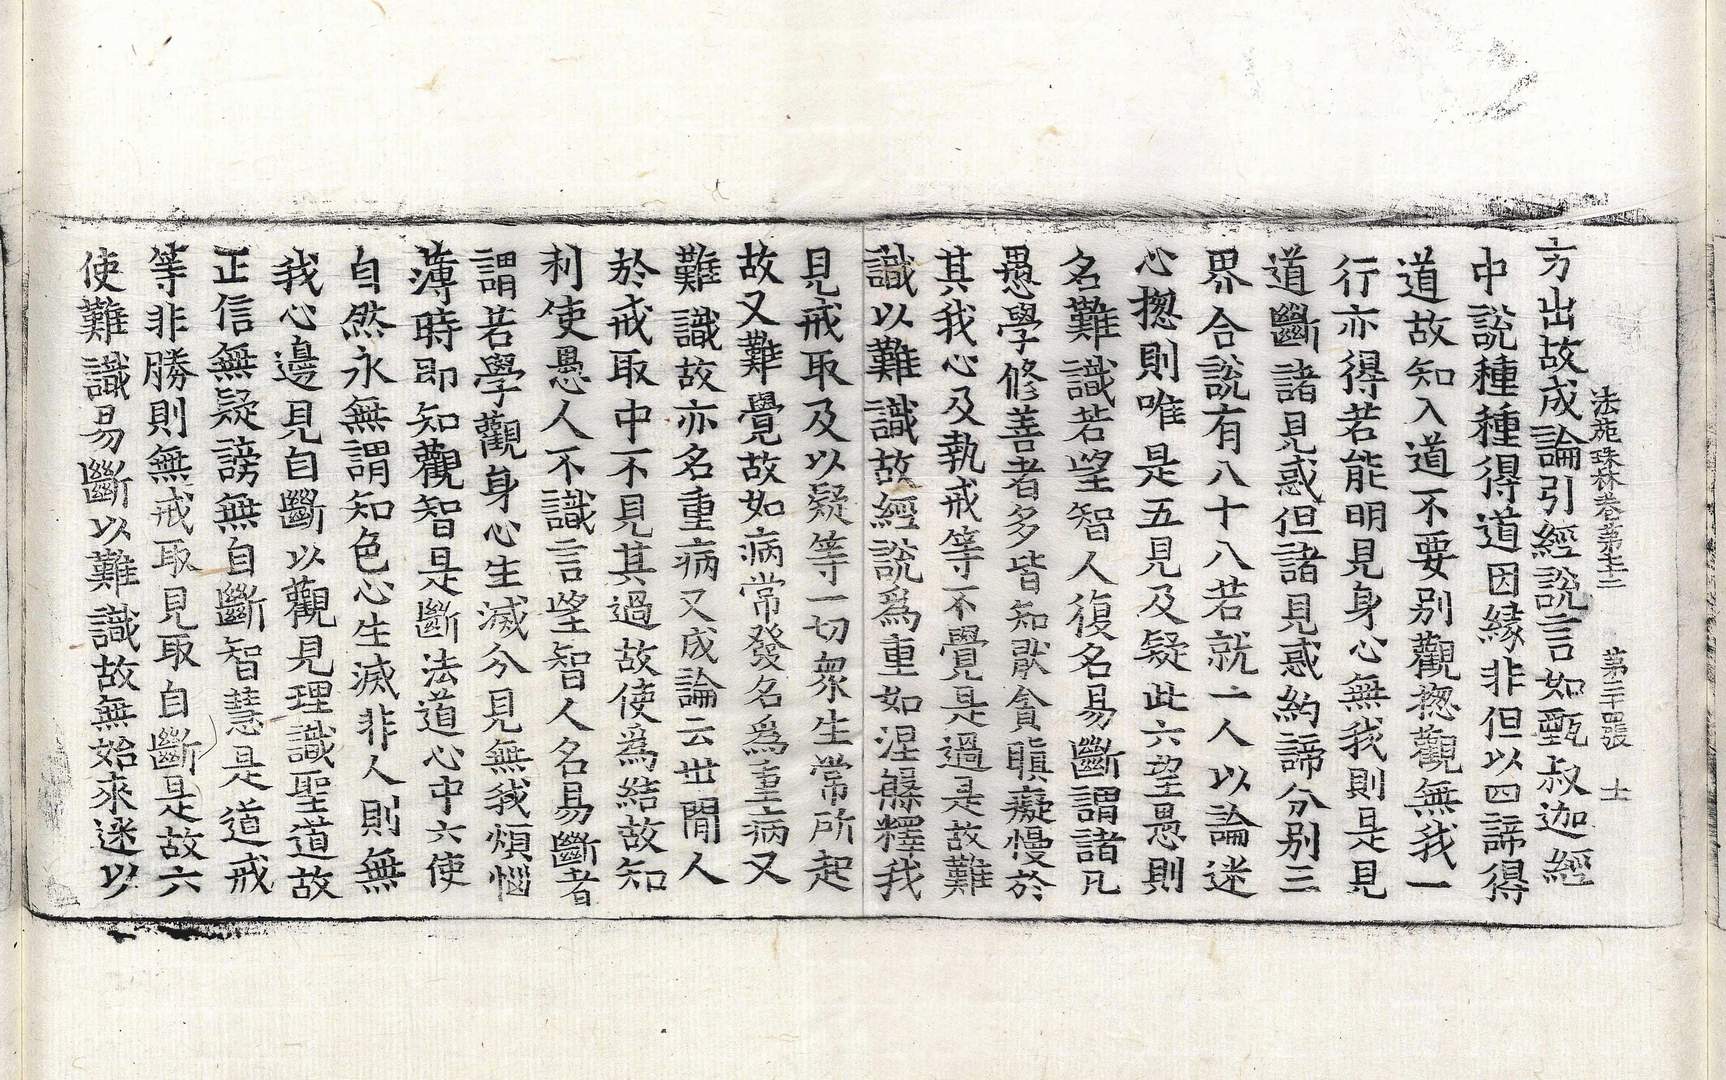 法苑珠林卷第七十二　第三十四張　士
方出故成論引經說言如甄叔迦經
中說種種得道因緣非但以四諦得
道故知入道不要別觀揔觀無我一
行亦得若能明見身心無我則是見
道斷諸見惑但諸見惑約諦分別三
界合說有八十八若就一人以論迷
心揔則唯是五見及疑此六望愚則
名難識若望智人復名易斷謂諸凡
愚學修善者多皆知猒貪瞋癡慢於
其我心及執戒等不覺是過是故難
識以難識故經說為重如涅槃釋我
見戒取及以疑等一切衆生常所起
故又難覺故如病常發名為重病又
難識故亦名重病又成論云世閒人
於戒取中不見其過故使為結故知
利使愚人不識言望智人名易斷者
謂若學觀身心生滅分見無我煩惱
薄時即知觀智是斷法道心中六使
自然永無謂知色心生滅非人則無
我心邊見自斷以觀見理識聖道故
正信無疑謗無自斷智慧是道戒
等非勝則無戒取見取自斷是故六
使難識易斷以難識故無始來迷以